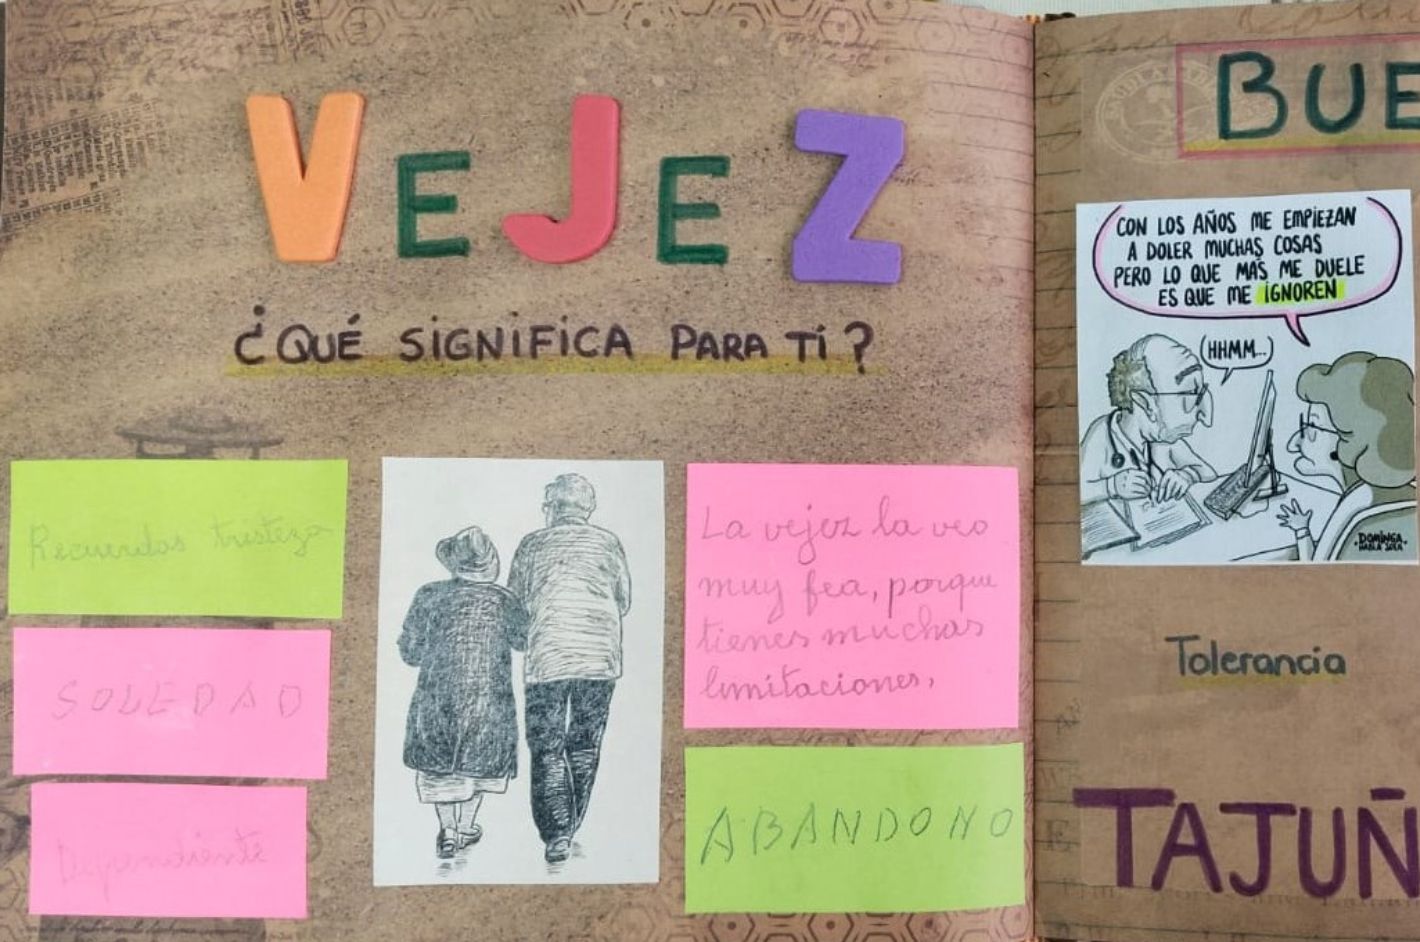 VEJEZ
¿QUÉ SIGNIFICA PARA TÍ?
Recuerdos tristeza
SOLEDAD
Dependiente
La vejez la veo
muy fea, porque
tienes muchas
limitaciones.
ABANDONO
BUE
CON LOS AÑOS ME EMPIEZAN
A DOLER MUCHAS COSAS
PERO LO QUE MÁS ME DUELE
ES QUE ME IGNOREN
HHMM...
DOMINGA
HABLA SOLA
Tolerancia
TAJUÑ